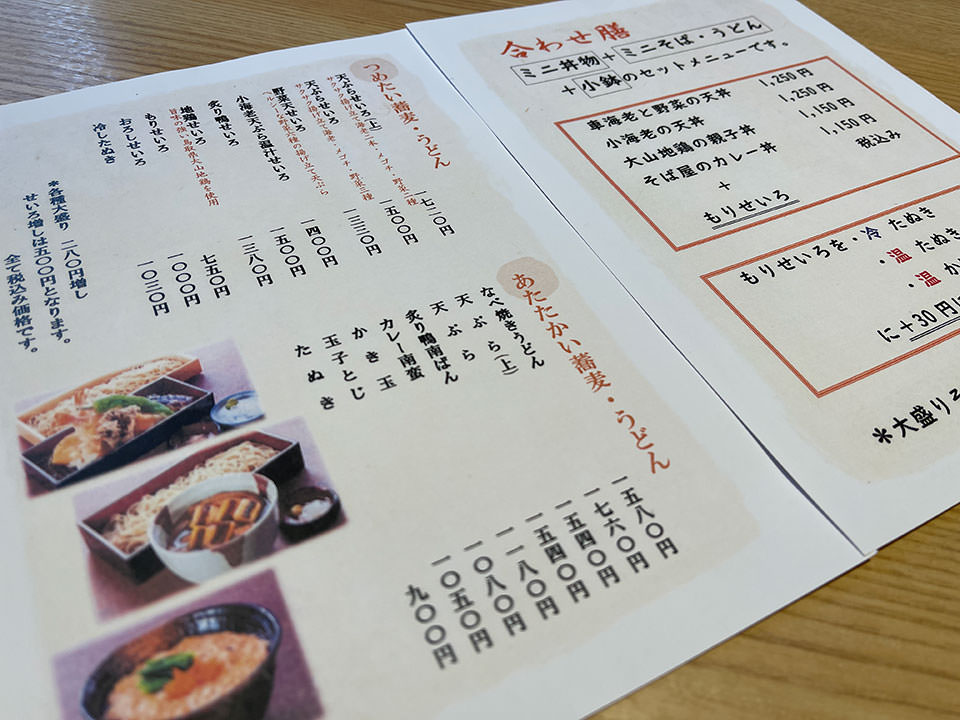 つめたい蕎麦・うどん
天ぷらせいろ(上) 一七二〇円
サクサク揚げ立て 海老二本・メゴチ・野菜二種
天ぷらせいろ 一五〇〇円
サクサク揚げ立て 海老・メゴチ・野菜三種
野菜天せいろ 一三三〇円
ヘルシーな野菜六種の揚げ立て天ぷら
小海老天ぷら温汁せいろ 一四〇〇円
炙り鴨せいろ 一五〇〇円
地鶏せいろ 一三八〇円
旨味の強い鳥取県大山地鶏を使用
もりせいろ 七五〇円
おろしせいろ 一〇〇〇円
冷したぬき 一〇三〇円
*各種大盛り 二八〇円増し
せいろ増しは五〇〇円となります。
全て税込み価格です。
あたたかい蕎麦・うどん
なべ焼きうどん 一五八〇円
天ぷら(上) 一七六〇円
天ぷら 一五四〇円
炙り鴨南ばん 一五四〇円
カレー南蛮 一一八〇円
かき玉 一〇八〇円
玉子とじ 一〇五〇円
たぬき 九〇〇円
合わせ膳
ミニ丼物+ミニそば・うどん
+小鉢のセットメニューです。
車海老と野菜の天丼 1,250円
小海老の天丼 1,250円
大山地鶏の親子丼 1,150円
そば屋のカレー丼 1,150円
税込み
+
もりせいろ
もりせいろを・冷 たぬき
・温 たぬき
・温 か
に+30円
*大盛り